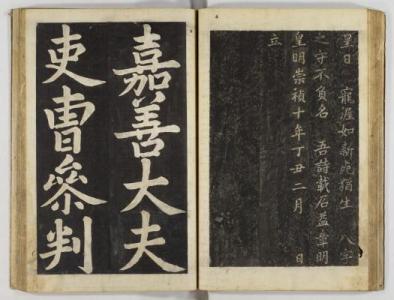 日 寵渥如新死猶生 八字
之守不負名 吾詩載石益章明
皇明崇禎十年丁丑二月 日
立
嘉善大夫
吏曺叅判